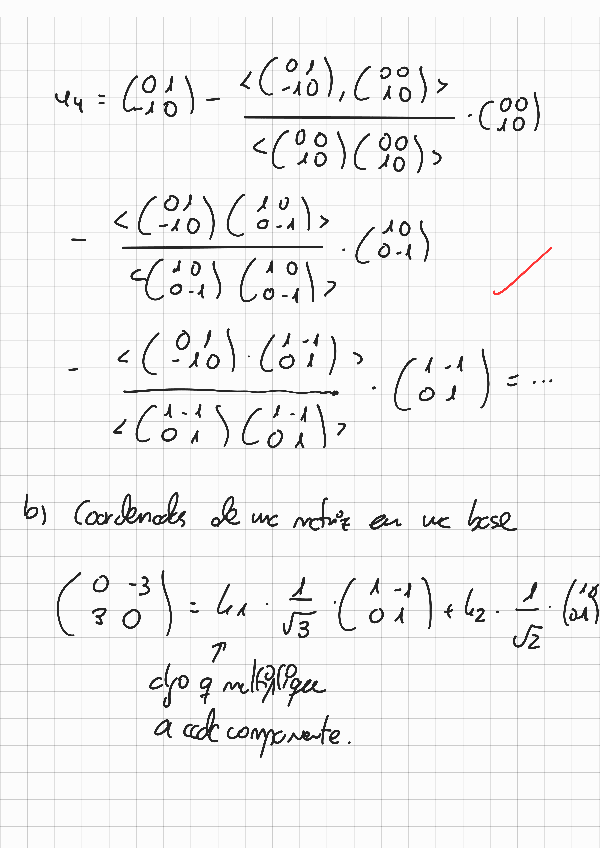 u₄ = (0 1 / -1 0) - <(0 1 / -1 0), (0 0 / 1 0)> / <(0 0 / 1 0) (0 0 / 1 0)> · (0 0 / 1 0)
- <(0 1 / -1 0) (1 0 / 0 -1)> / <(1 0 / 0 -1) (1 0 / 0 -1)> · (1 0 / 0 -1)
- <(0 1 / -1 0) · (1 -1 / 0 1)> / <(1 -1 / 0 1) (1 -1 / 0 1)> · (1 -1 / 0 1) = ...
b) Coordenadas de una matriz en una base
(0 -3 / 3 0) = k₁ · 1/√3 · (1 -1 / 0 1) + k₂ · 1/√2 ·
↗
algo q multiplique
a cada componente.